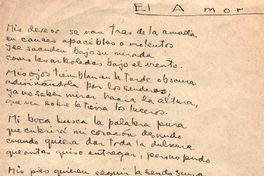 El Amor
Mis deseos se van tras de la amada
en cauces apacibles o violentos
y se encienden bajo su mirada
como las arboledas bajo el viento.
Mis ojos tiemblan en la tarde obscura
por los senderos,
ya no saben mirar hacia la altura,
que ven sobre la tierra los luceros.
Mi boca busca la palabra pura
que cubrirá mi corazón desnudo
cuando quiera dar toda la dulzura
que antes quiso entregar, pero no pudo
Mis pies quieren seguir la senda